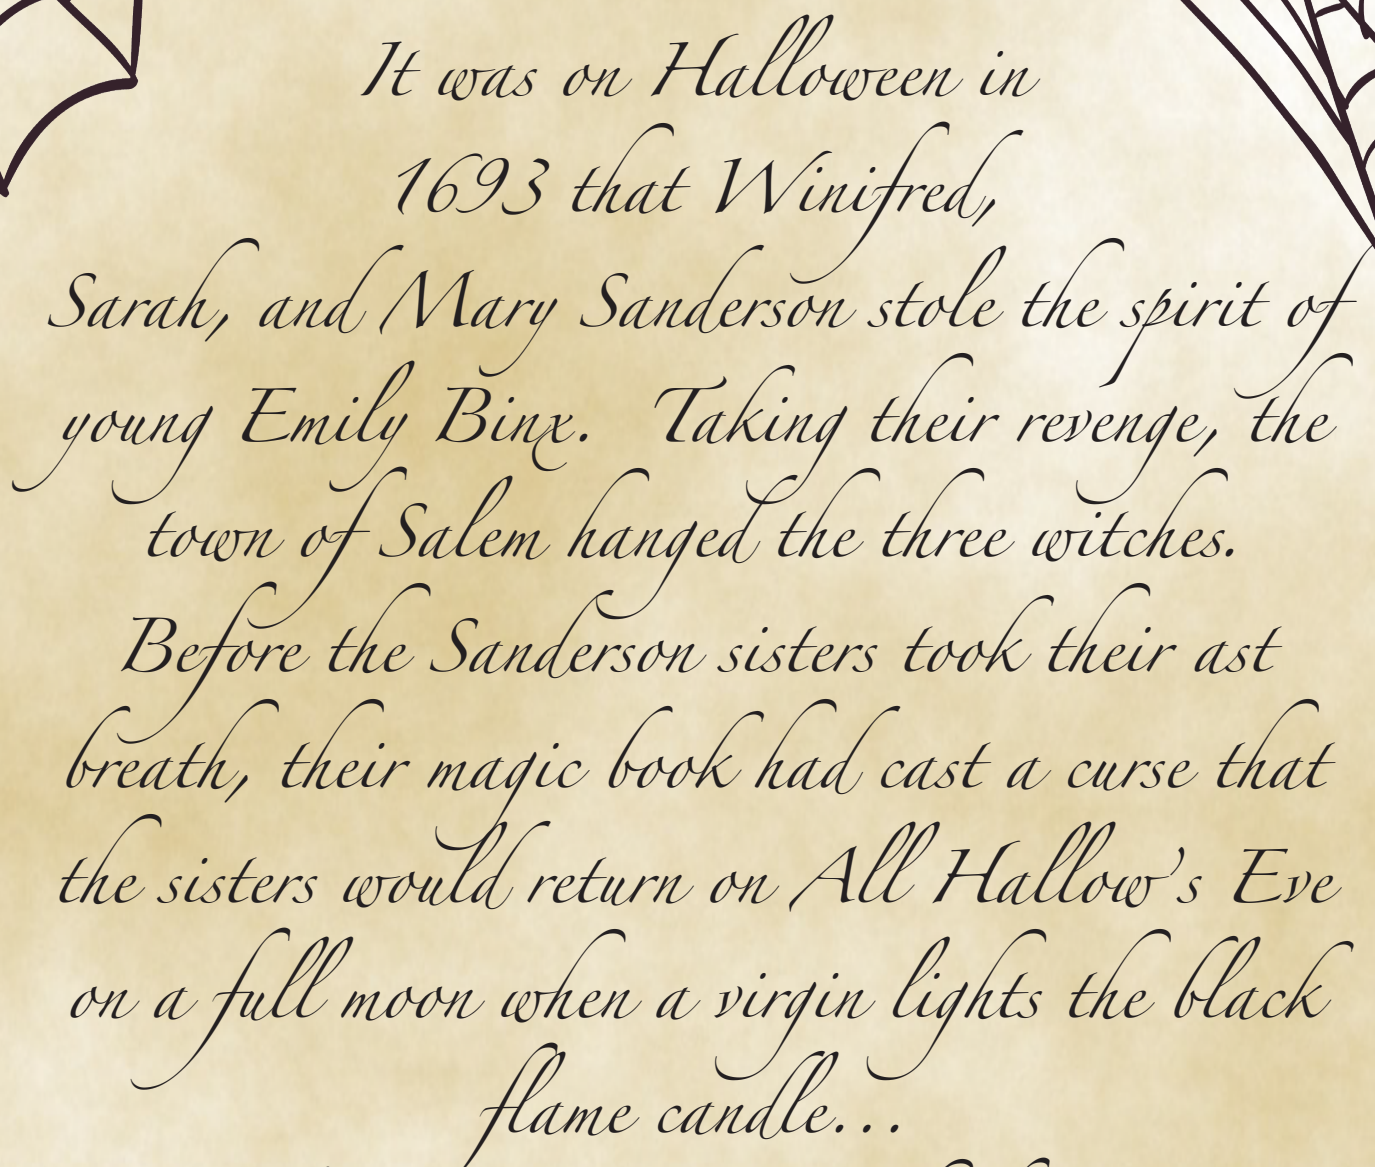 It was on Halloween in
1693 that Winifred,
Sarah, and Mary Sanderson stole the spirit of
young Emily Binx. Taking their revenge, the
town of Salem hanged the three witches.
Before the Sanderson sisters took their ast
breath, their magic book had cast a curse that
the sisters would return on All Hallow's Eve
on a full moon when a virgin lights the black
flame candle...